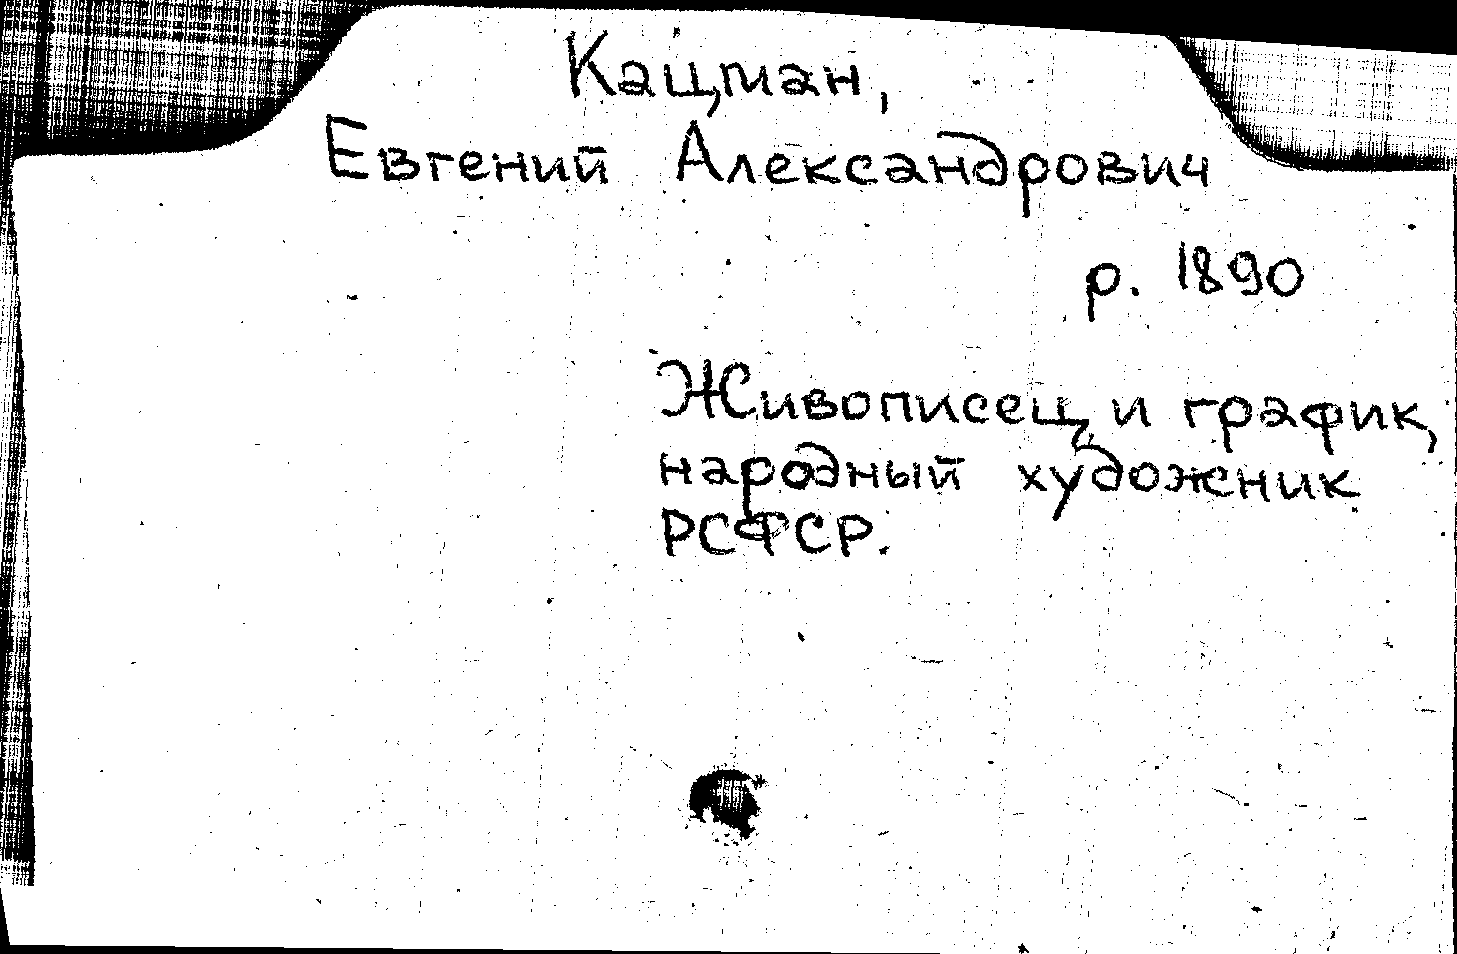 Кацман,
Евгений Александрович
р. 1890
Живописец и график,
народный художник
РСФСР.